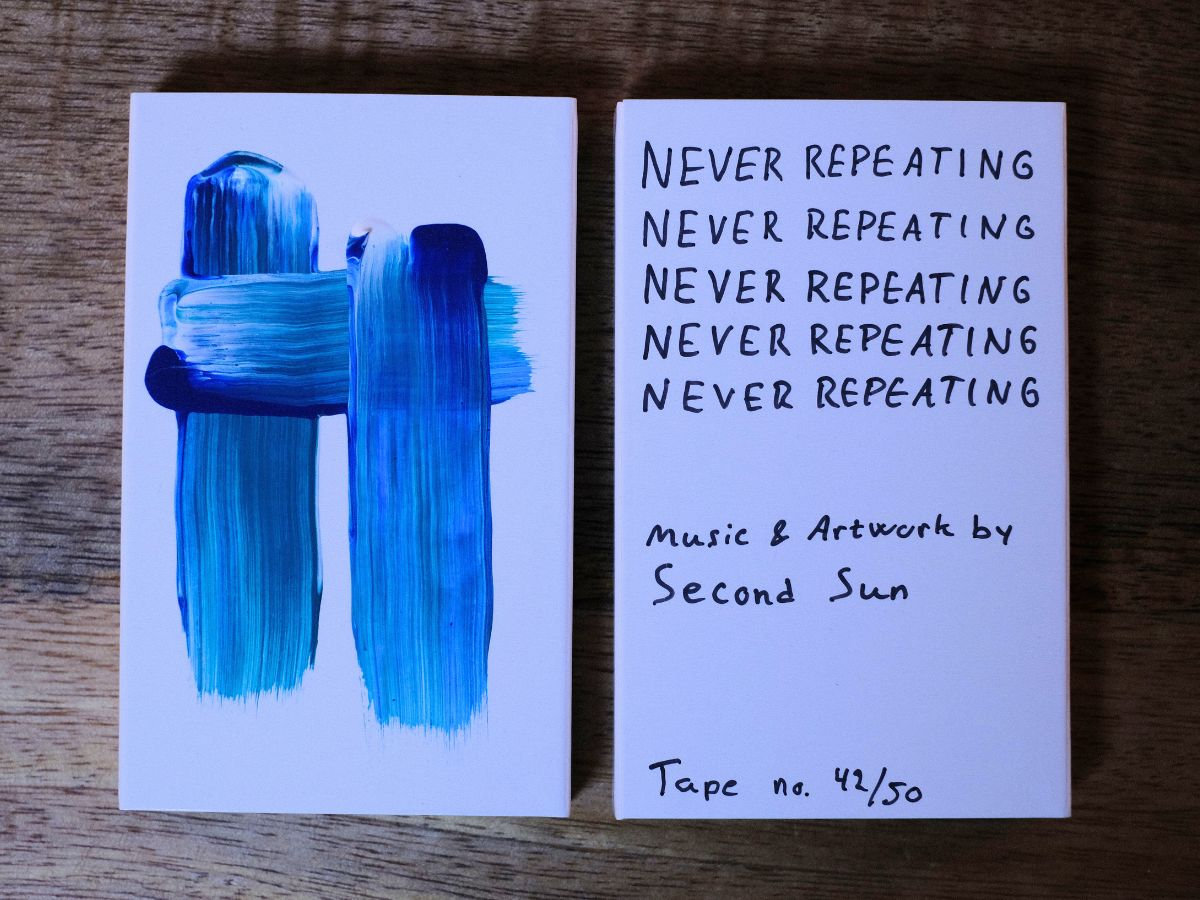 NEVER REPEATING
NEVER REPEATING
NEVER REPEATING
NEVER REPEATING
NEVER REPEATING
Music & Artwork by
Second Sun
Tape no. 42/50